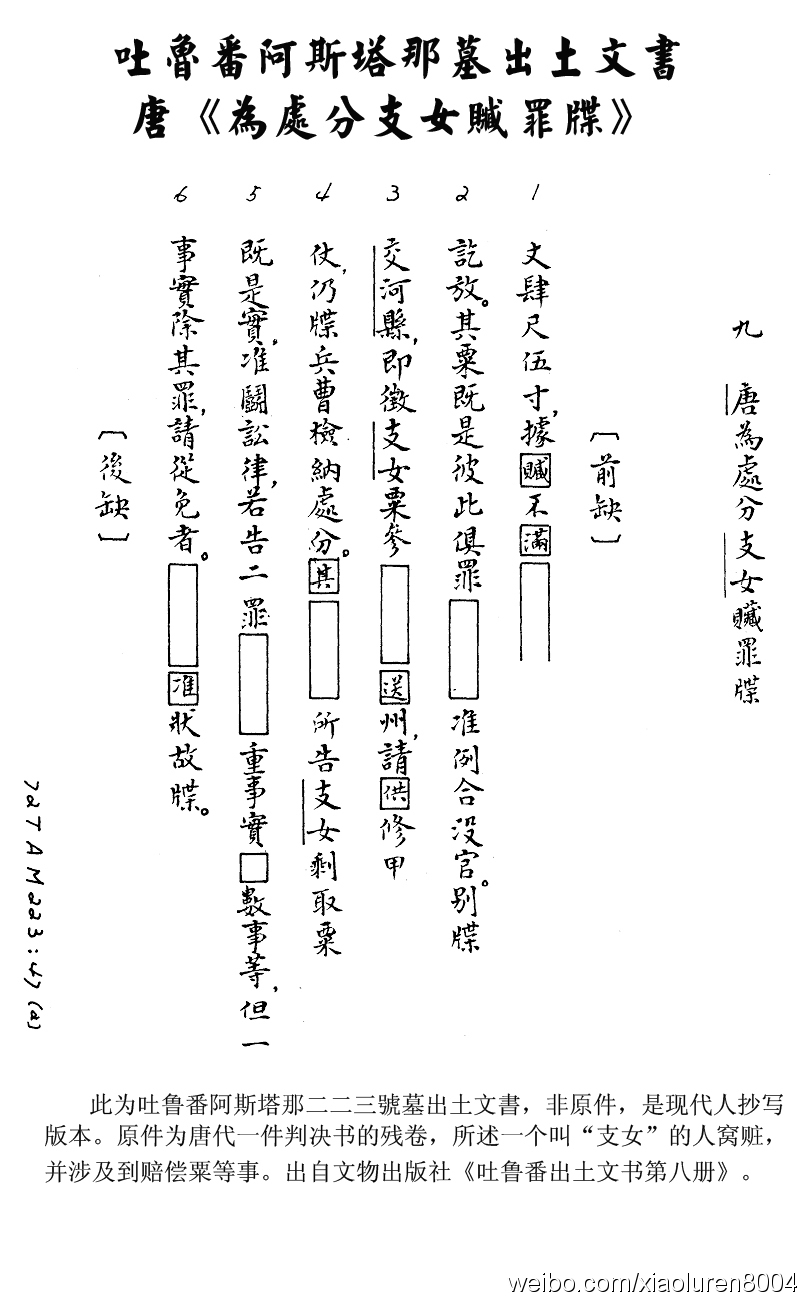 吐魯番阿斯塔那墓出土文書
唐《為處分支女贓罪牒》
九 唐為處分支女贓罪牒
〔前缺〕
1 文肆尺伍寸，據贓不滿
2 訖放。其粟既是彼此俱罪 准例合没官。别牒
3 交河縣，即徵支女粟參 送州，請供修甲
4 仗，仍牒兵曹檢納處分。其 所告支女剩取粟
5 既是實，准鬪訟律，若告二罪 重事實□數事等，但一
6 事實除其罪，請從免者。 准狀故牒。
〔後缺〕
72TAM223:47(a)
此为吐鲁番阿斯塔那二二三號墓出土文書，非原件，是现代人抄写
版本。原件为唐代一件判决书的残卷，所述一个叫“支女”的人窝赃，
并涉及到赔偿粟等事。出自文物出版社《吐鲁番出土文书第八册》。
weibo.com/xiaoluren8004